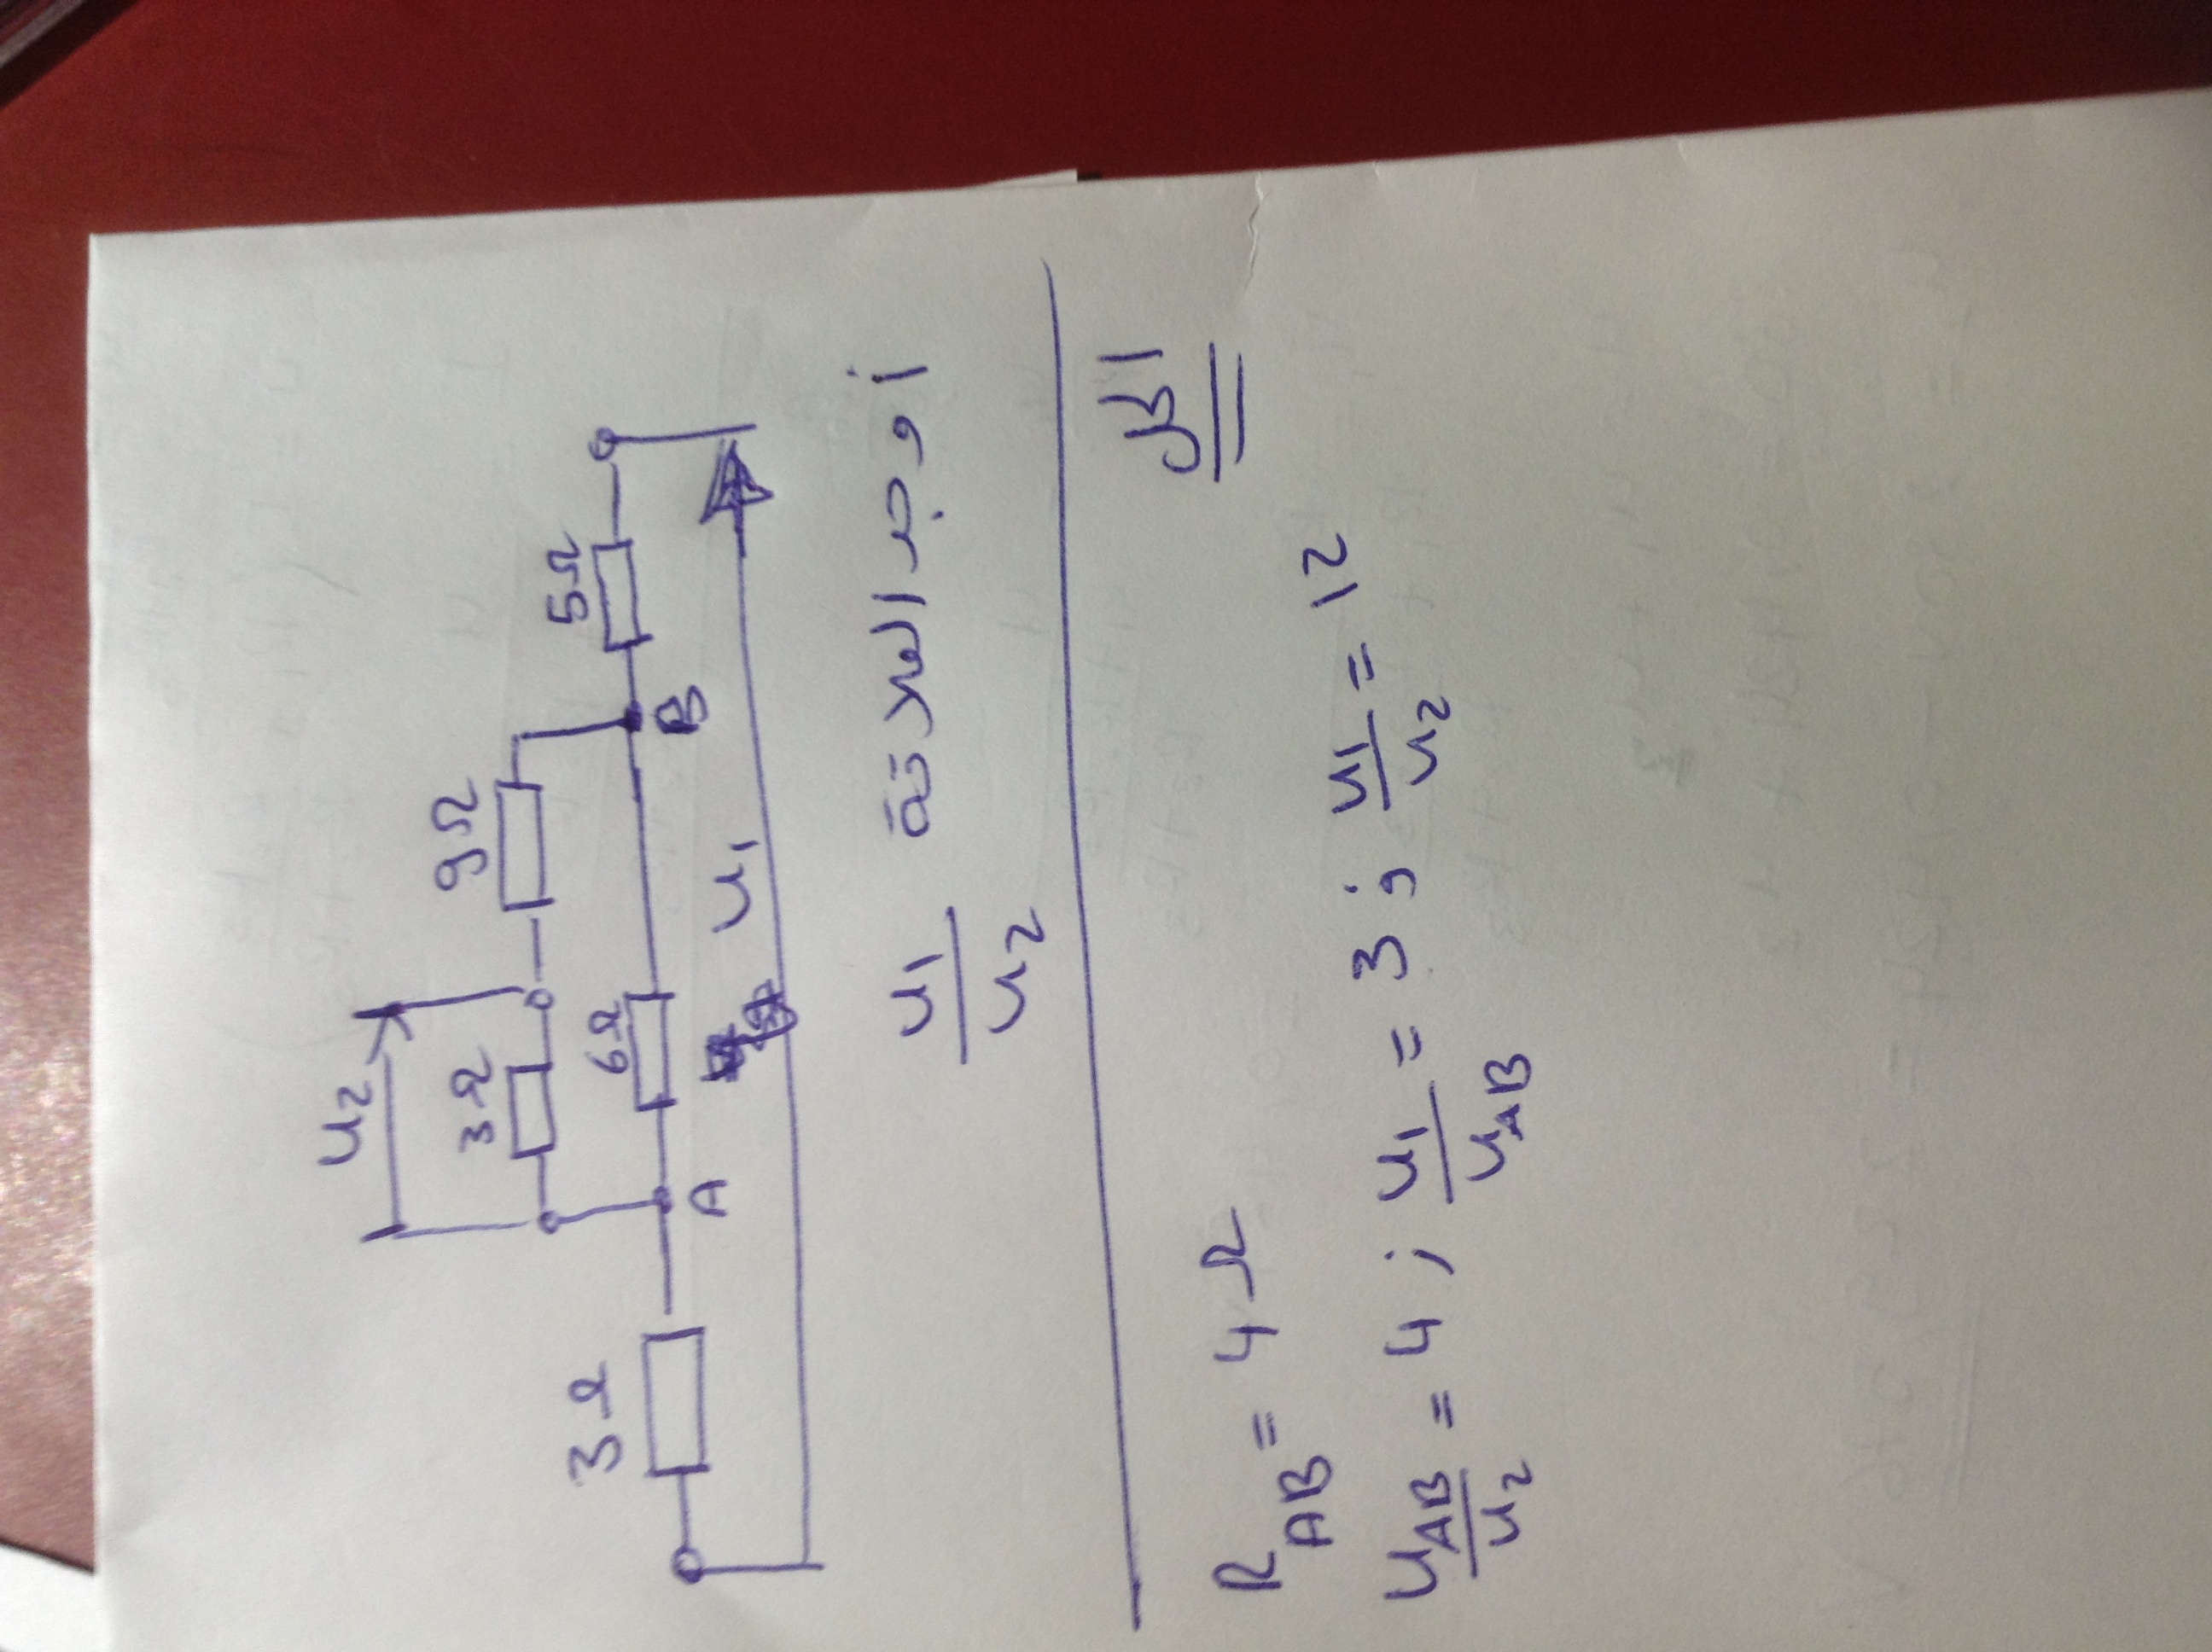 U2
3Ω
9Ω
3Ω
6Ω
5Ω
A
B
U1
أوجد العلاقة
U1/U2
الحل
RAB = 4Ω
UAB/U2 = 4 ; U1/UAB = 3 ; U1/U2 = 12